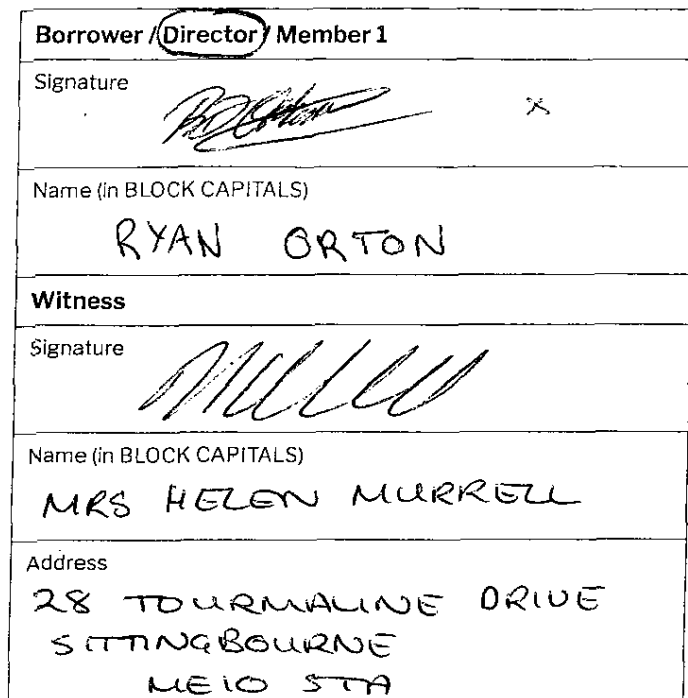 Borrower / Director / Member 1
Signature
x
Name (in BLOCK CAPITALS)
RYAN ORTON
Witness
Signature
Name (in BLOCK CAPITALS)
MRS HELEN MURRELL
Address
28 TOURMALINE DRIVE
SITTINGBOURNE
ME10 5TA